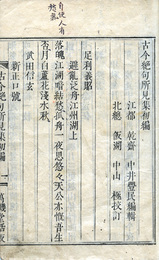 古今絶句所見集初編
江都 乾齋 中井豐民編輯
北總 飯湖 中山 極校訂
足利義昭
避亂泛舟江州湖上
落魄江湖暗結愁孤舟一夜思悠々天公亦慨吾生
否月白蘆花淺水秋
武田信玄
新正口號